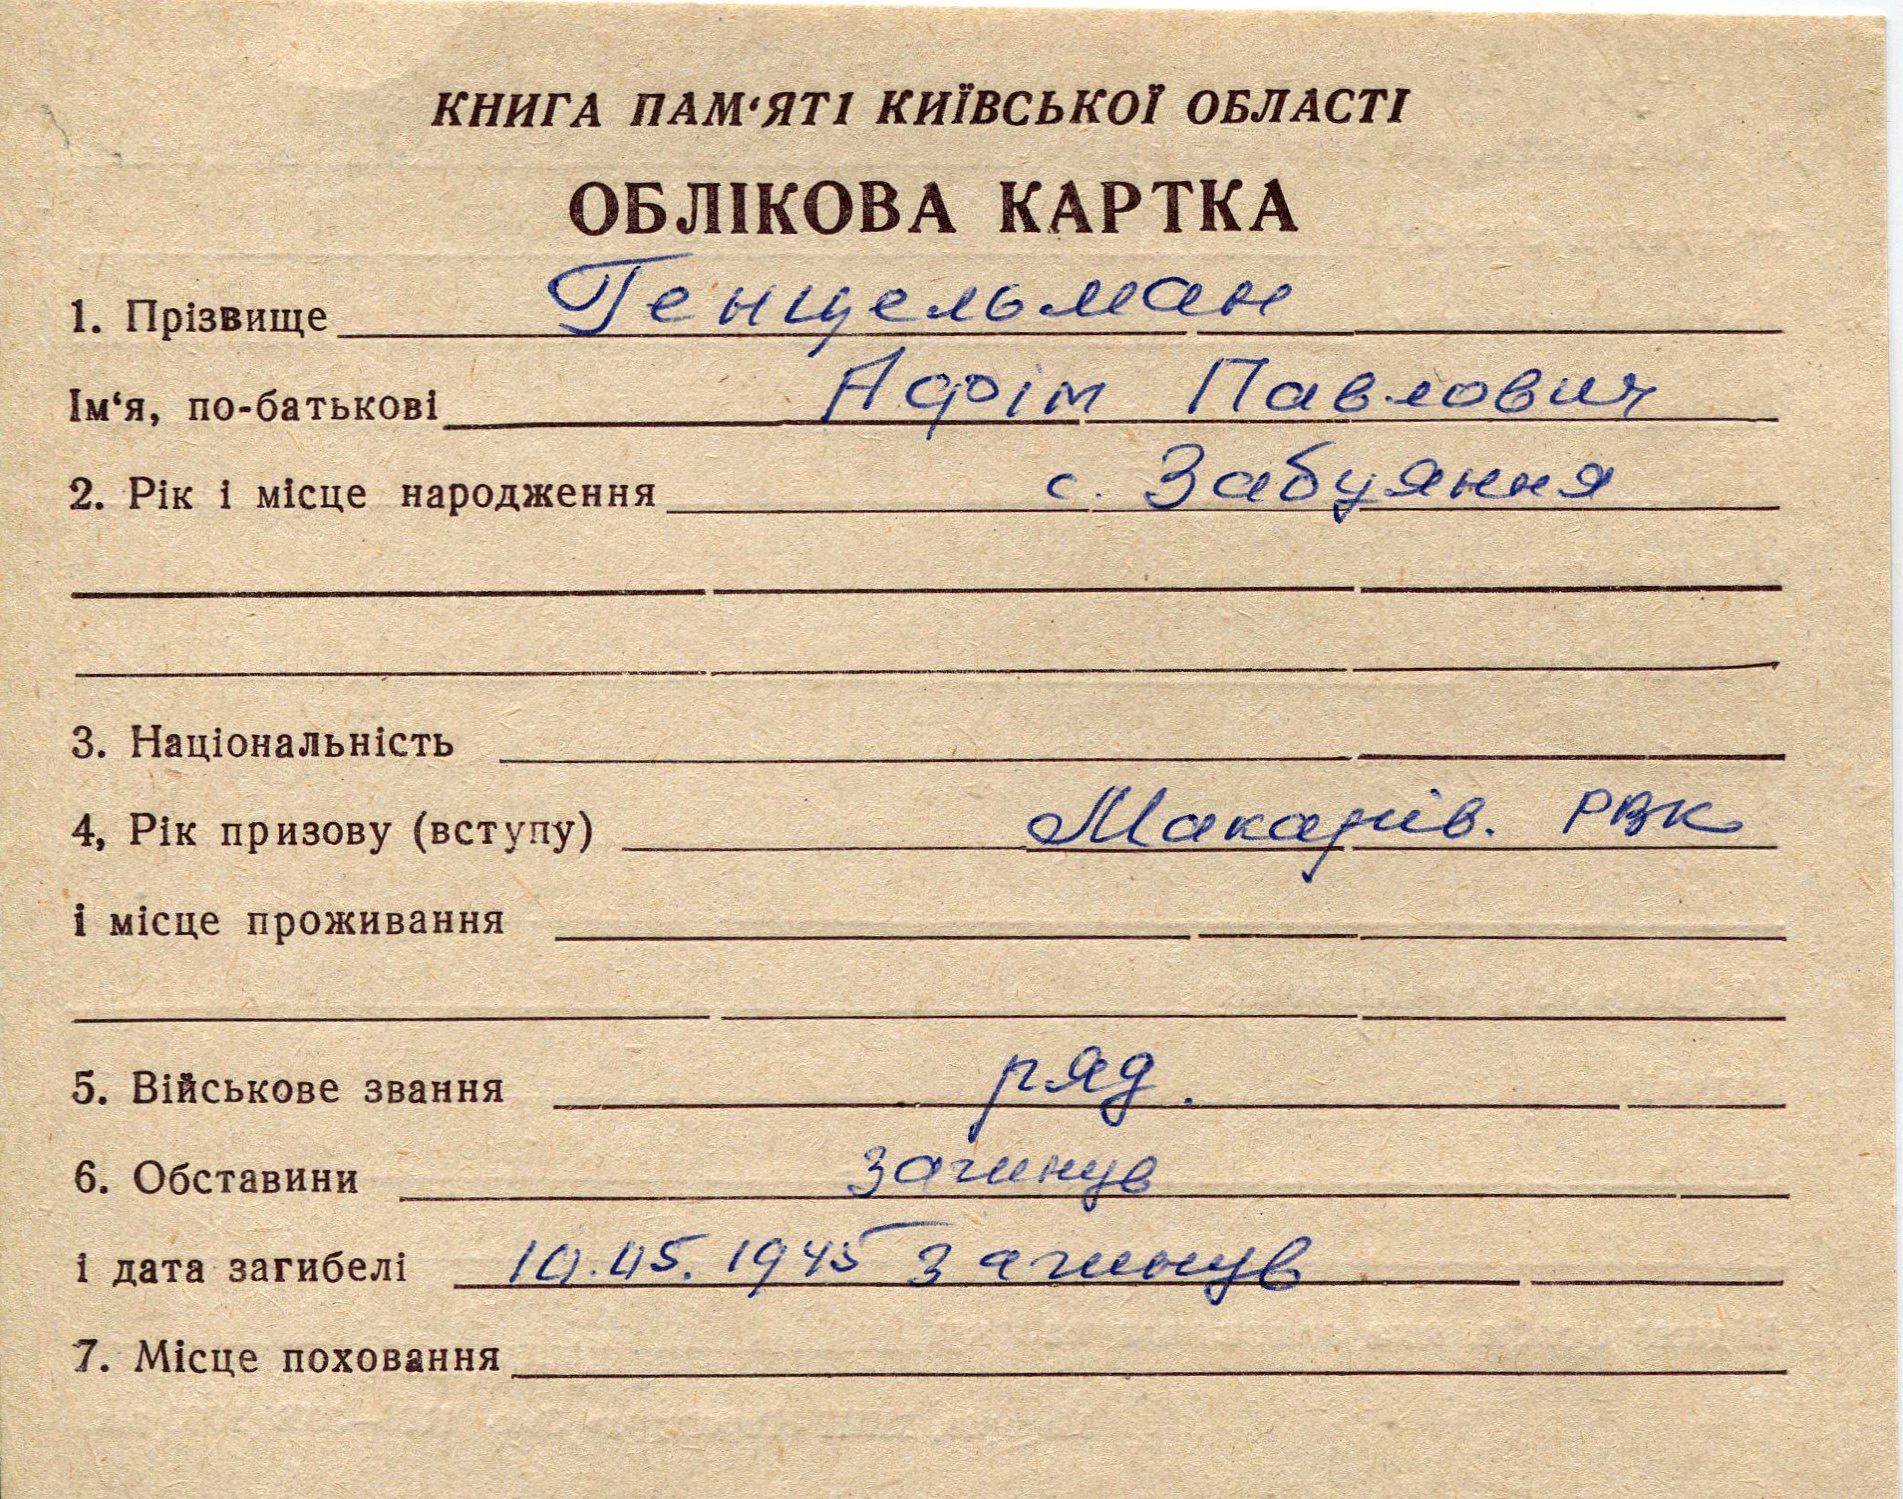 КНИГА ПАМ‘ЯТІ КИЇВСЬКОЇ ОБЛАСТІ
ОБЛІКОВА КАРТКА
1. Прізвище Генцельман
Ім‘я, по-батькові Афрім Павлович
2. Рік і місце народження с. Забуяння
3. Національність
4, Рік призову (вступу) Макарів. РВК
і місце проживання
5. Військове звання ряд.
6. Обставини загинув
і дата загибелі 10.05.1945 загинув
7. Місце поховання